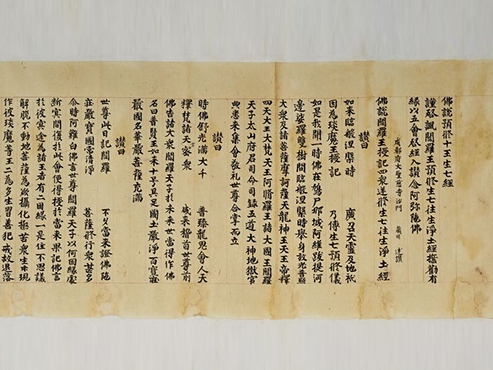 佛說預脩十王生七經
謹啓諷閻羅王預脩生七往生淨土經誓勸有
緣以五會啓經入讚念阿弥陁佛
成都府大聖慈寺沙門 藏川 述讚
佛說閻羅王授記四衆逆脩生七往生淨土經
讚曰
如来臨般涅槃時 廣召天靈及地祇
因為琰魔王授記 乃傳生七預脩儀
如是我聞一時佛在鳩尸那城阿維跋提河
邊娑羅雙樹間臨般涅槃時舉身放光普照
大衆及諸菩薩摩訶薩天龍神王天王帝釋
四天大王大梵天王阿脩羅王諸大國王閻羅
天子太山府君司命司録五道大神地獄官
典悉来集會敬礼世尊合掌而立
讚曰
時佛舒光滿大千 普臻龍鬼會人天
釋梵諸天冥密衆 咸来稽首世尊前
佛告諸大衆閻羅天子於未来世當得作佛
名曰普賢王如来十号具足國土嚴淨百寶莊
嚴國名華嚴菩薩充滿
讚曰
世尊此日記閻羅 不久當来證佛陁
莊嚴寶國常清淨 菩薩脩行衆甚多
尒時阿難白佛言世尊閻羅天子以何因緣處
斷冥間復於此會便得授於當来果記佛言
於彼冥途為諸王者有二因緣一是住不思議
解脱不動地菩薩為欲攝化極苦衆生示現
作彼琰魔等王二為多生習善犯戒故退落